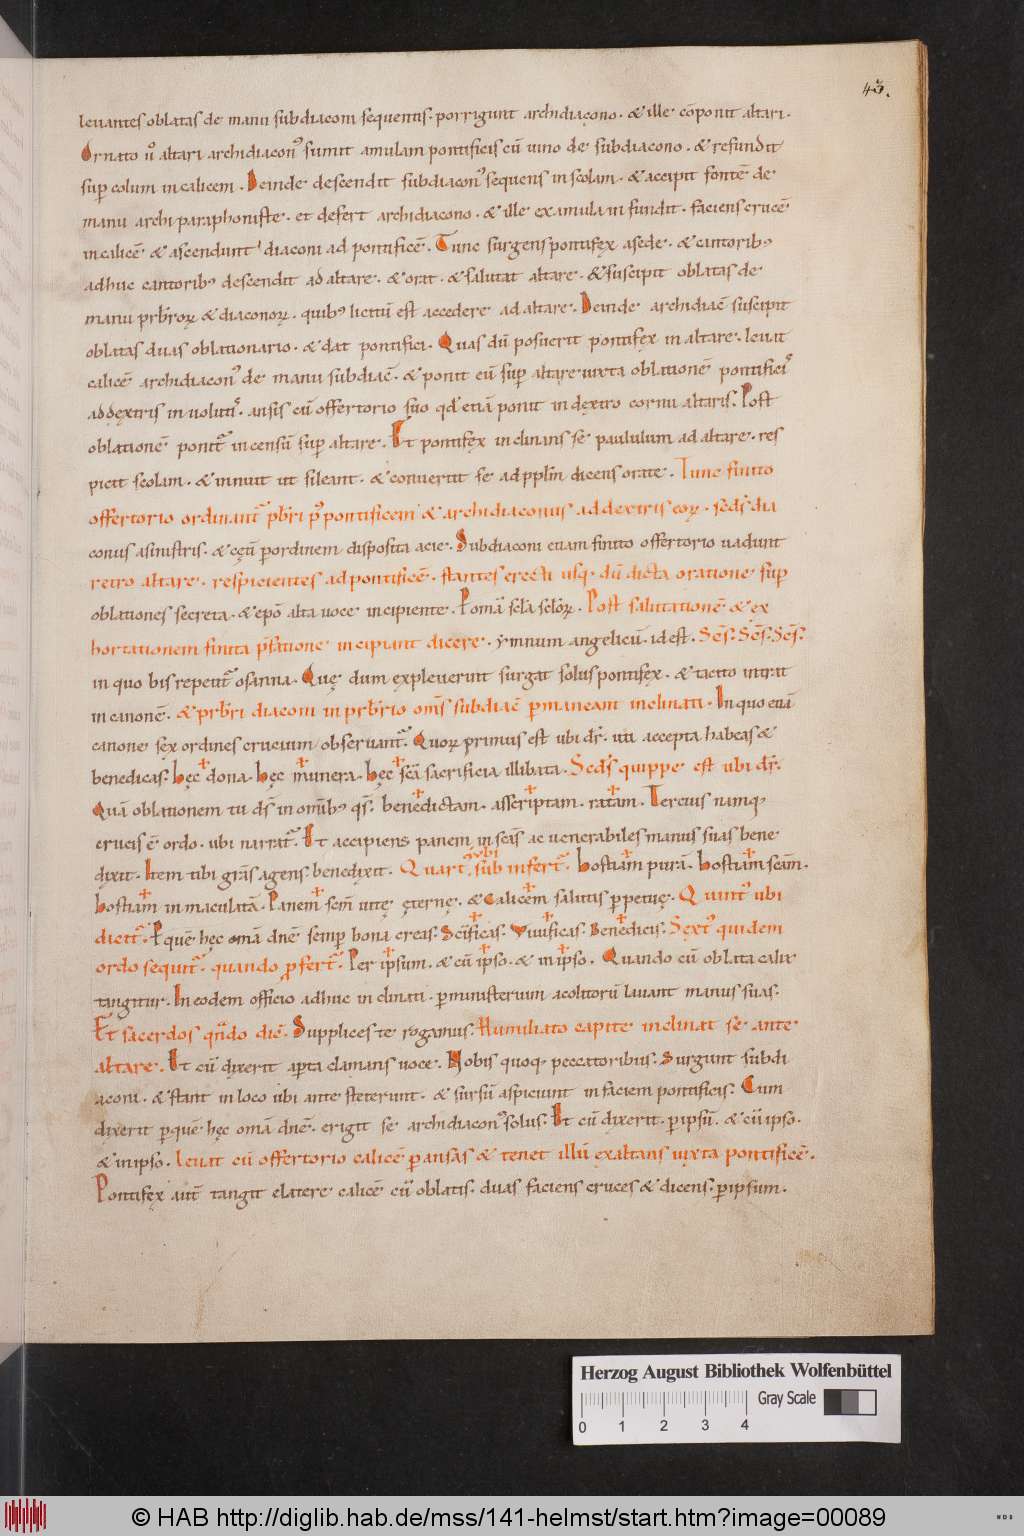 43.
leuantes oblatas de manu subdiaconi sequentis. porrigunt archidiacono. & ille cōponit altari.
Ornato u͛ altari archidiaconꝰ sumit amulam pontificis cū uino de subdiacono. & refundit
suꝑ colum in calicem. Deinde descendit subdiaconꝰ sequens in scolam. & accipit fontē de
manu archi paraphoniste. et defert archidiacono. & ille ex amula in fundit. faciens crucē
in calicē & ascendunt diaconi ad pontificē. Tunc surgens pontifęx a sede. & cantoribꝰ
adhuc cantoribꝰ descendit ad altare. & orat. & salutat altare. & suscipit oblatas de
manu prb̄roꝝ & diaconoꝝ. quibꝰ licitū est accedere ad altare. Deinde archidiac̄ suscipit
oblatas duas oblationario. & dat pontifici. Quas dū posuerit pontifęx in altare. leuat
calicē archidiaconꝰ de manu subdiac̄. & ponit eū suꝑ altare iuxta oblationē pontificiꝰ
ad dęxtris in uolutiꝰ. ansis cū offertorio suo qd̄ etiā ponit in dęxtro cornu altaris. Post
oblationē ponit᷑ in censū suꝑ altare. Et pontifęx inclinans se paululum ad altare. res
picit scolam. & innuit ut sileant. & conuertit se ad ppl̄m dicens orate. Tunc finito
offertorio ordinant᷑ p̄bri pꝰ pontificem & archidiaconus ad dextris eoꝝ. seds̄ dia
conus a sinistris. & cęt̄i ꝑ ordinem disposita acie. Subdiaconi etiam finito offertorio uadunt
retro altare. respicientes ad pontificē. stantes erecti usq; dū dicta oratione suꝑ
oblationes secreta. & ep̄o alta uoce incipiente. Pomīa scl̄a scl̄oꝝ. Post salutationē & ex
hortationem finita p̄fatione incipiunt dicere. ymnum angelicū. id est. Sc̄s. Sc̄s. Sc̄s.
in quo bis repetit᷑ osanna. Quę dum expleuerint surgat solus pontifęx. & tacito intrat
in canonē. & prb̄ri diaconi in prb̄rio om̄s subdiac̄ ꝑmaneant inclinati. In quo etiā
canone sęx ordines crucium obseruant᷑. Quoꝝ primus est ubi dr̄. uti accepta habeas &
benedicas. hęc dona. hęc munera. hęc sc̄a sacrificia illibata. Sed̄s quippe est ubi dr̄.
Quā oblationem tu ds̄ in omībꝰ qs̄. benedictam. asscriptam. ratam. Tercius namq;
crucis ē ordo. ubi narrat᷑. Et accipiens panem in sc̄is ac uenerabiles manus suas bene
dixit. Item tibi grās agens benedixit. Quartꝰ ubi sub infert᷑. hostiam purā. hostiam scam̄.
hostiam in maculatā. Panem sc̄m uitę ęternę. & Calicem salutis ꝑpetuę. Quintꝰ ubi
dicit᷑. P quē hęc om̄a dn̄e semꝑ bona creas. Sc̄ificas. Viuificas. Benedicis. Sęxtꝰ quidem
ordo sequit᷑. quando ꝓfert᷑. Per ipsum. & cū ipso. & in ipso. Quando cū oblata calix
tangitur. In eodem officio adhuc in clinati. ꝑ ministerium acolitorū lauant manus suas.
Et sacerdos qn̄do dic̄. Supplices te rogamus. Humiliato capite inclinat se ante
altare. Et cū dixerit aꝑta clamans uoce. Nobis quoq; peccatoribus. Surgunt subdi
aconi. & stant in loco ubi ante steterunt. & sursū aspiciunt in faciem pontificis. Cum
dixerit ꝑ quē hęc om̄a dn̄e. erigit se archidiaconꝰ solus. Et cū dixerit. ꝑ ipsū. & cū ipso.
& in ipso. Leuat cū offertorio calicē ꝑ ansas & tenet illū exaltans iuxta pontificē.
Pontifęx aut̄ tangit e latere calicē cū oblatis. duas faciens cruces & dicens. ꝑ ipsum.
Herzog August Bibliothek Wolfenbüttel
Gray Scale
0 1 2 3 4
© HAB http://diglib.hab.de/mss/141-helmst/start.htm?image=00089